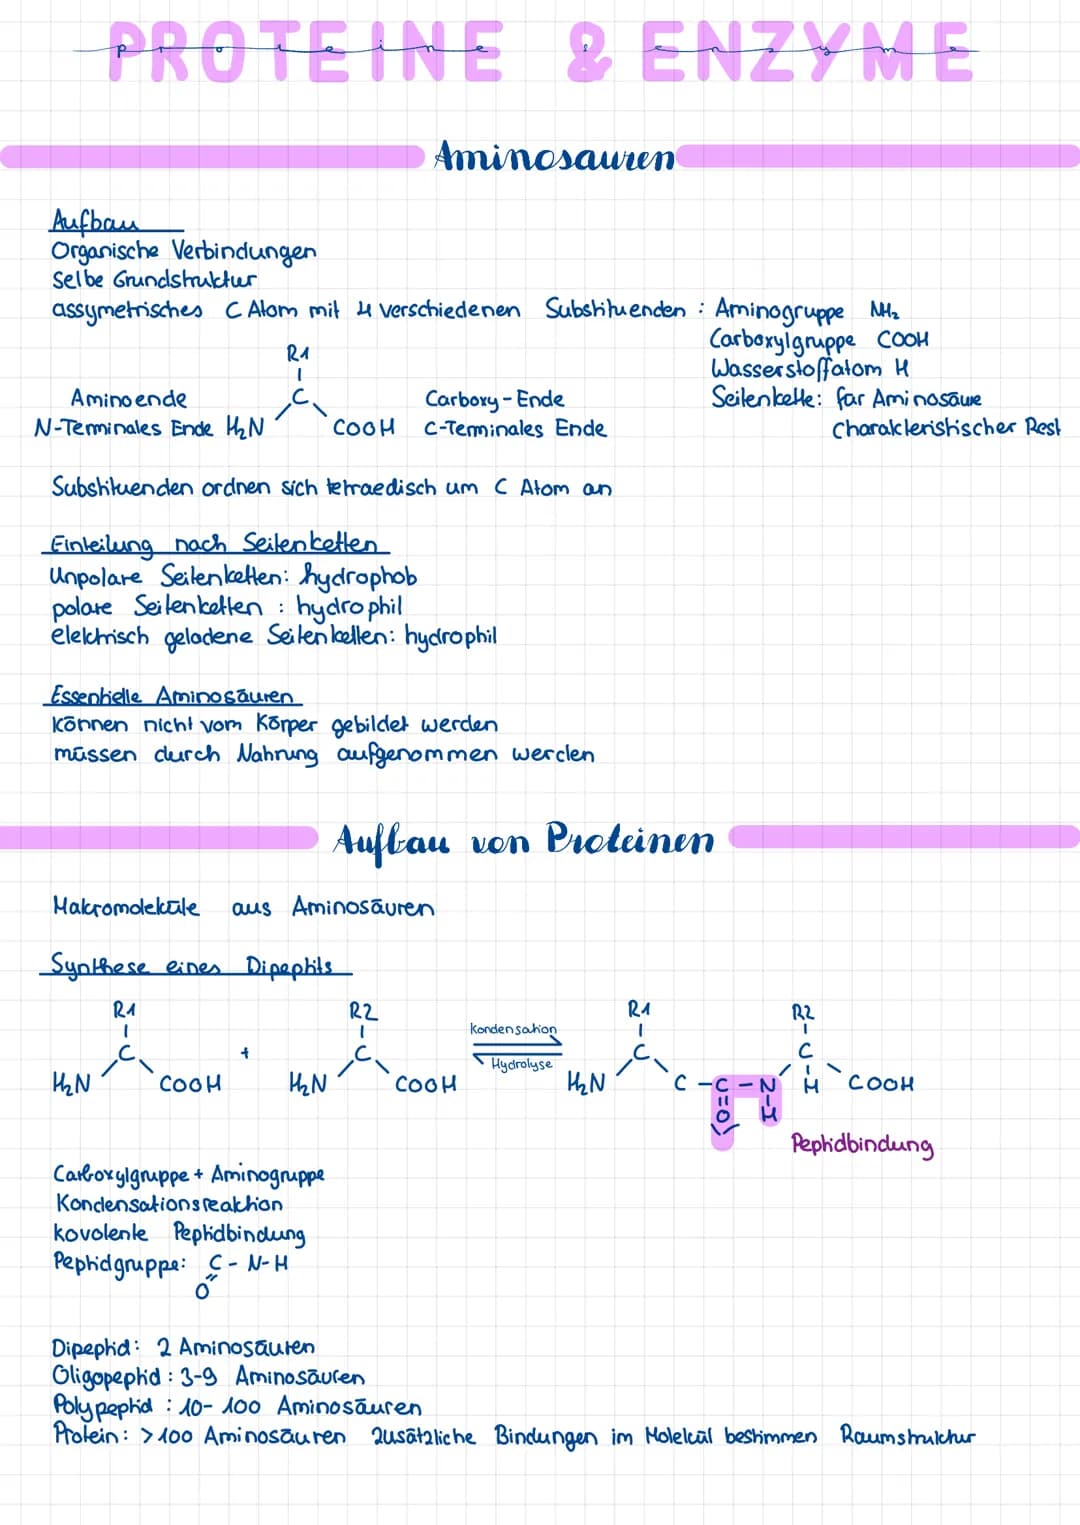 PROTEINE & ENZYME
proteine & enzyme
Aminosauren
Aufbau
Organische Verbindungen
Selbe Grundstruktur
assymetrisches C Atom mit 4 verschiedenen Substituenden : Aminogruppe NH₂
Carboxylgruppe COOH
Wasserstoffatom H
Seitenkette: für Aminosäure
Charakteristischer Rest
R1
C
Aminoende
Carboxy-Ende
N-Terminales Ende H₂N COOH C-Terminales Ende
Substituenden ordnen sich tetraedisch um C Atom an
Einteilung nach Seitenketten
Unpolare Seitenketten: hydrophob
polare Seitenketten : hydrophil
elektrisch geladene Seitenketten: hydrophil
Essentielle Aminosäuren
können nicht vom Körper gebildet werden
müssen durch Nahrung aufgenommen werden
Aufbau von Proteinen
Makromoleküle aus Aminosäuren
Synthese eines Dipeptits
R1 R2 R1 R2
C + C Kondensation C C
Hydrolyse
H₂N COOH H₂N COOH H₂N C - C - N H COOH
O H
Peptidbindung
Carboxylgruppe + Aminogruppe
Kondensationsreaktion
kovolente Peptidbindung
Peptidgruppe: C - N-H
O
Dipeptid: 2 Aminosäuren
Oligopeptid : 3-9 Aminosäuren
Polypeptid : 10-100 Aminosäuren
Protein: >100 Aminosäuren zusätzliche Bindungen im Molekül bestimmen Raumstruktur